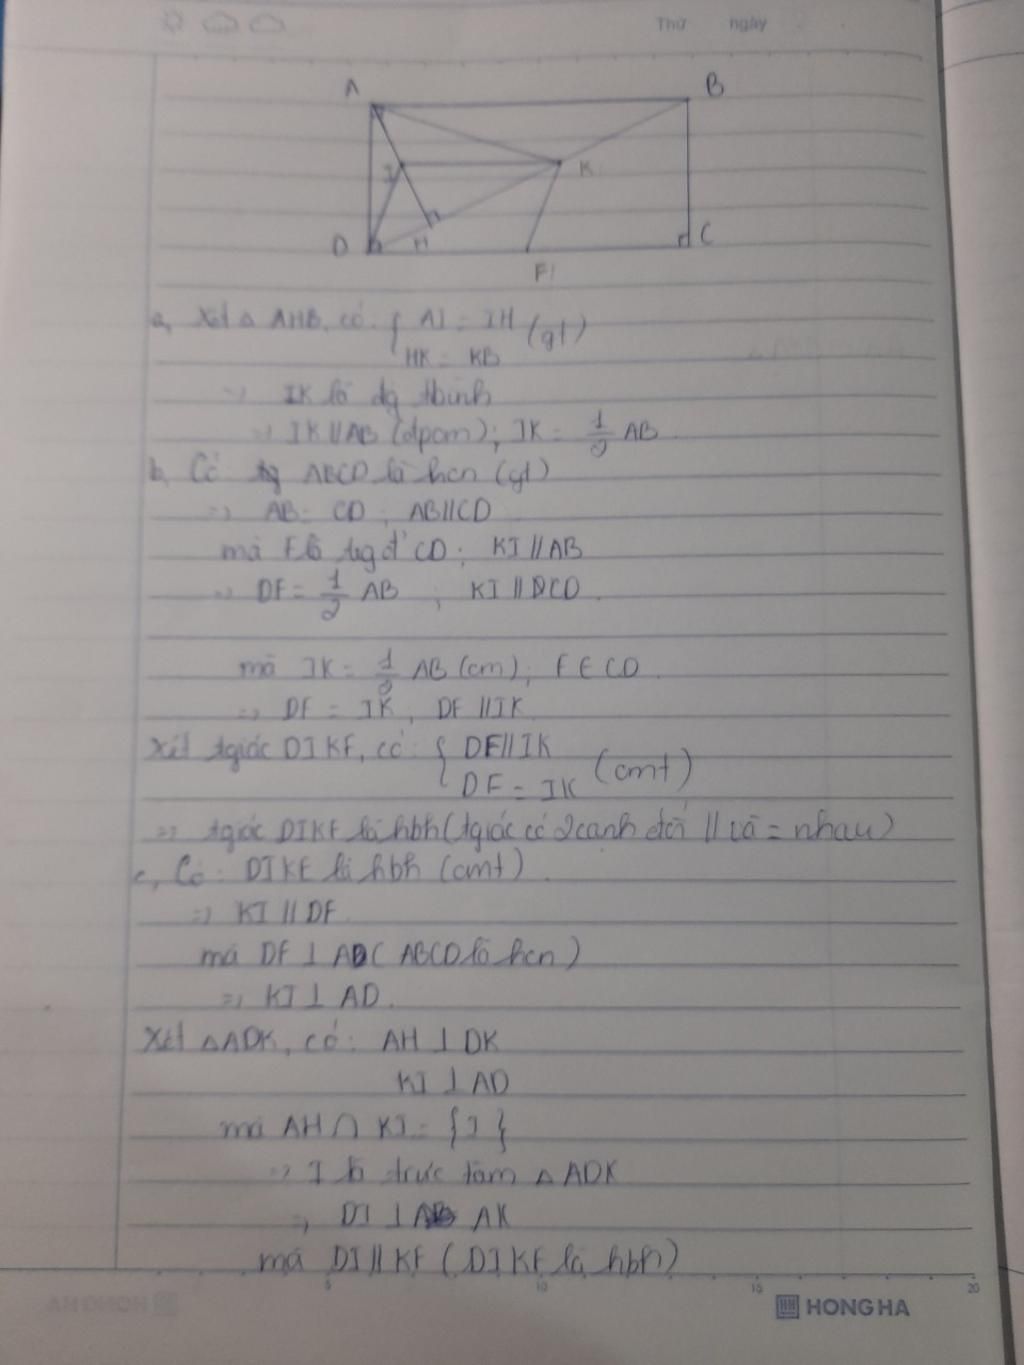 Thứ ngày
A B
I K
D H F C
a, Xét △ AHB, có: { AI = IH (gt)
HK = KB
=> IK là đg tbình
=> IK // AB (đpcm); IK = 1/2 AB
b, Có tg ABCD là hcn (gt)
=> AB = CD; AB // CD
mà F là tg đ' CD; KI // AB
=> DF = 1/2 AB ; KI // DCD.
mà IK = 1/2 AB (cm); F ∈ CD.
=> DF = IK; DF // IK
Xét tgiác DIKF, có: { DF // IK (cmt)
DF = IK
=> tgiác DIKF là hbh (tgiác có 2 cạnh đối // và = nhau)
c, Có: DIKF là hbh (cmt).
=> KI // DF.
mà DF ⊥ AD (ABCD là hcn)
=> KI ⊥ AD.
Xét △ADK, có: AH ⊥ DK
KI ⊥ AD
mà AH ∩ KI = {I}
=> I là trực tâm △ ADK
=> DI ⊥ AK
mà DI // KF (DIKF là hbh)
5 10 15 20
HONG HA